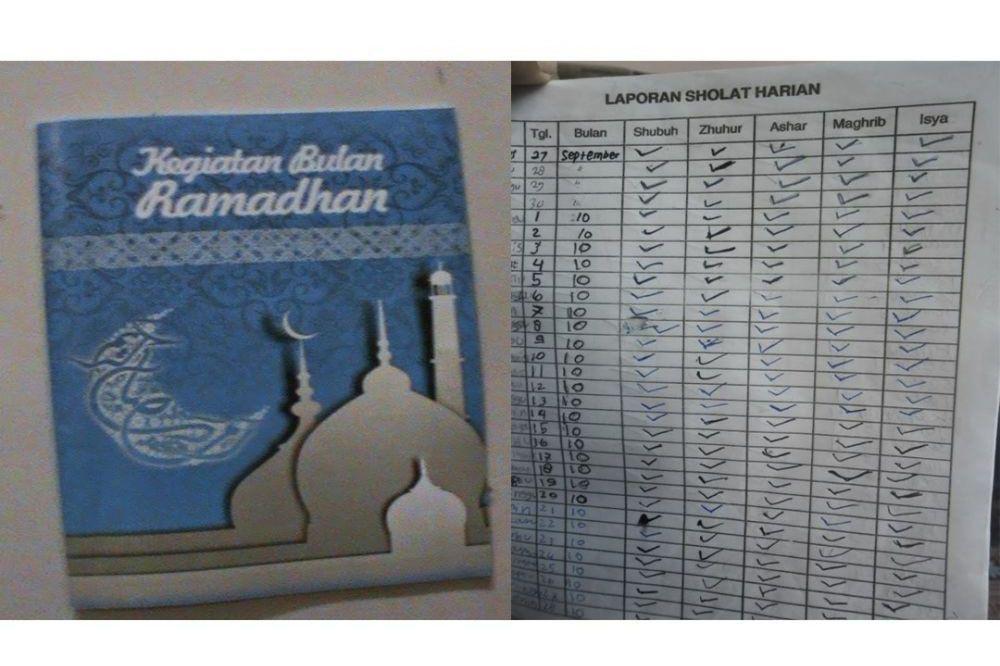 Kegiatan Bulan
Ramadhan
LAPORAN SHOLAT HARIAN
Tgl. Bulan Shubuh Zhuhur Ashar Maghrib Isya
27 September
28 "
29 "
30 "
1 10
2 10
3 10
4 10
5 10
6 10
7 10
8 10
9 10
10 10
11 10
12 10
13 10
14 10
15 10
16 10
17 10
18 10
19 10
20 10
21 10
22 10
23 10
24 10
25 10
26 10